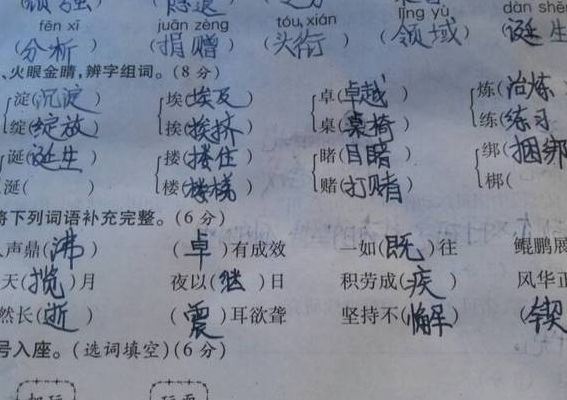 fēn xī juān zèng tóu xián lǐng yù dàn shē
(分析) (捐赠) (头衔) (领域) (诞生
、火眼金睛,辨字组词。(8 分)
淀(沉淀) 埃(埃及) 卓(卓越) 炼(冶炼
绽(绽放) 挨(挨挤) 桌(桌椅) 练(练习
诞(诞生) 搂(搂住) 睹(目睹) 绑(捆绑
涎( ) 楼(楼梯) 赌(打赌) 梆(
将下列词语补充完整。(6 分)
人声鼎(沸) (卓)有成效 一如(既)往 鲲鹏展
天(揽)月 夜以(继)日 积劳成(疾) 风华正
然长(逝) (震)耳欲聋 坚持不(懈) (锲
号入座。(选词填空)(6 分)